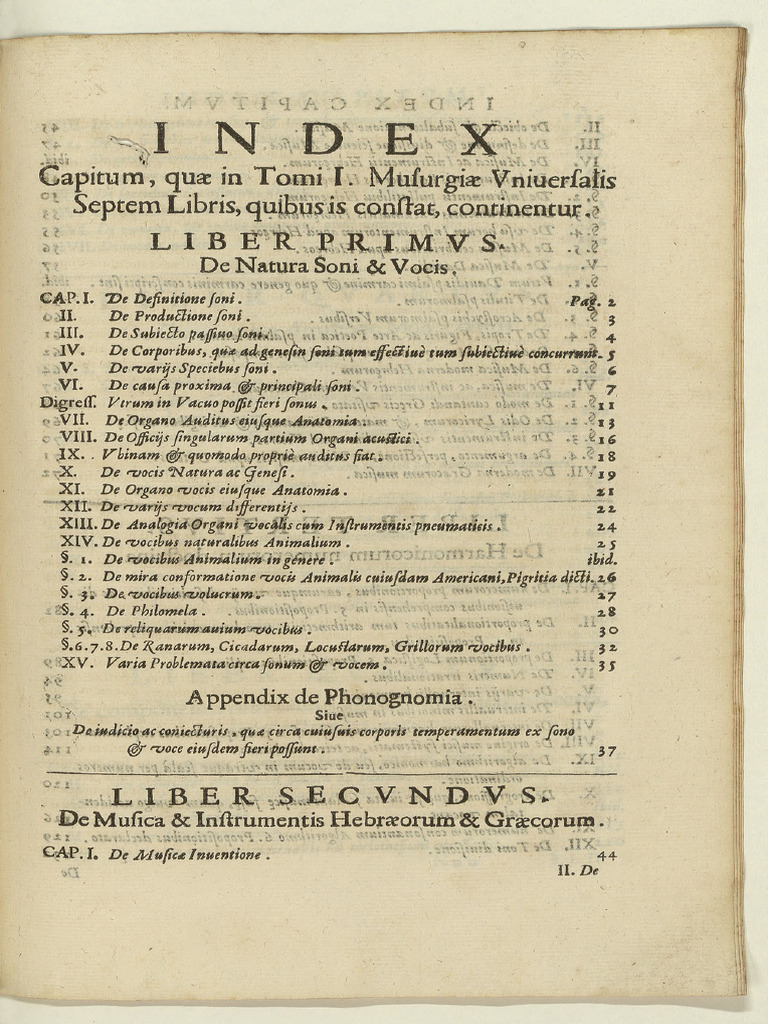 INDEX
Capitum, quæ in Tomi I. Muſurgiæ Vniuerſalis
Septem Libris, quibus is conſtat, continentur.
LIBER PRIMVS.
De Natura Soni & Vocis.
CAP. I. De Definitione ſoni. Pag. 2
II. De Productione ſoni. 3
III. De Subiecto paſſiuo ſoni. 4
IV. De Corporibus, quæ ad geneſin ſoni tum effectiuè tum ſubiectiuè concurrunt. 5
V. De varijs Speciebus ſoni. 6
VI. De cauſa proxima & principali ſoni. 7
Digreſſ. Vtrum in Vacuo poſſit fieri ſonus. 11
VII. De Organo Auditus eiuſque Anatomia. 13
VIII. De Officijs ſingularum partium Organi acuſtici. 16
IX. Vbinam & quomodo propriè auditus fiat. 18
X. De vocis Natura ac Geneſi. 19
XI. De Organo vocis eiuſque Anatomia. 21
XII. De varijs vocum differentijs. 22
XIII. De Analogia Organi vocalis cum Inſtrumentis pneumaticis. 24
XIV. De vocibus naturalibus Animalium. 25
§. 1. De vocibus Animalium in genere. ibid.
§. 2. De mira conformatione vocis Animalis cuiuſdam Americani, Pigritia dicti. 26
§. 3. De vocibus volucrum. 27
§. 4. De Philomela. 28
§. 5. De reliquarum auium vocibus. 30
§. 6. 7. 8. De Ranarum, Cicadarum, Locuſtarum, Grillorum vocibus. 32
XV. Varia Problemata circa ſonum & vocem. 35
Appendix de Phonognomia.
Siue
De iudicio ac coniecturis, quæ circa cuiuſuis corporis temperamentum ex ſono
& voce eiuſdem fieri poſſunt. 37
LIBER SECVNDVS.
De Muſica & Inſtrumentis Hebræorum & Græcorum.
CAP. I. De Muſicæ Inuentione. 44
II. De